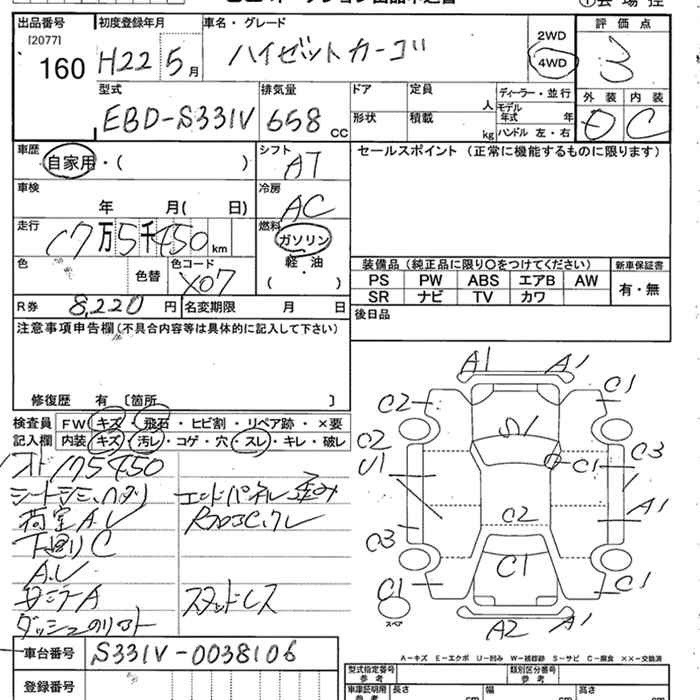 出品番号 初度登録年月 車名・グレード 評価点
[2077]
160 H22 5月 ハイゼットカーゴ 2WD 4WD 3
型式 排気量 ドア 定員 人 ディーラー・並行 外装 内装
EBD-S331V 658 CC 形状 積載 kg モデル年式 年 ハンドル 左・右 D C
車歴 シフト セールスポイント (正常に機能するものに限ります)
自家用・( ) AT
車検 冷房
年 月( 日) AC
走行 燃料
17万5千450km ガソリン
色 色替 色コード 軽・油
X07 ( )
装備品(純正品に限り○をつけてください) 新車保証書
PS PW ABS エアB AW 有・無
SR ナビ TV カワ
R券 8,220円 名変期限 月 日 後日品
注意事項申告欄(不具合内容等は具体的に記入して下さい)
修復歴 有 〔箇所 〕
検査員 FW キズ・飛石・ヒビ割・リペア跡・×要
記入欄 内装 キズ・汚レ・コゲ・穴・スレ・キレ・破レ
175450
エンドパネル歪み
荷室A.U
下廻りC
A.U
スタッドレス
A1 A1
C2 C1
S1
C2 C3
U1 C1
A1
C2
C3
C1
C1 C1
スペア
A2 A1
A=キズ E=エクボ U=凹み W=補修跡 S=サビ C=腐食 ××=交換済
車台番号 S331V-0038106
登録番号
型式指定番号 参考 類別区分番号 参考
車庫証明用 参考 長さ cm 幅 cm 高さ cm